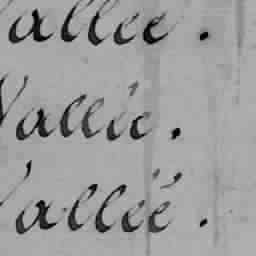 Vallée.
Vallée.
Vallée.